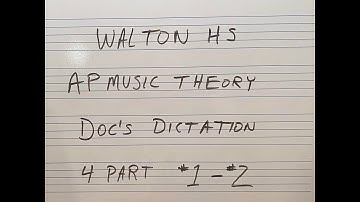 WALTON HS
AP MUSIC THEORY
DOC'S DICTATION
4 PART #1-#2